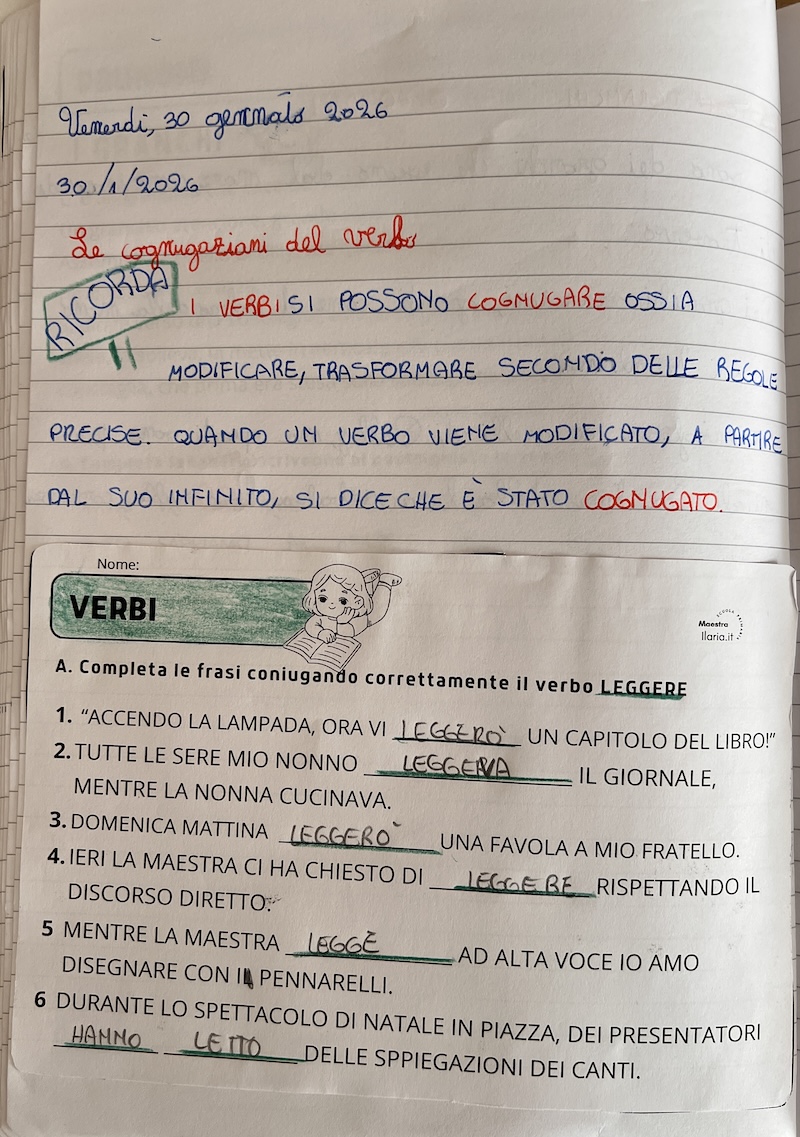 Venerdì, 30 gennaio 2026
30/1/2026
Le cognugaziani del verbo
RICORDA
!!
I VERBI SI POSSONO COGNUGARE OSSIA
MODIFICARE, TRASFORMARE SECONDO DELLE REGOLE
PRECISE. QUANDO UN VERBO VIENE MODIFICATO, A PARTIRE
DAL SUO INFINITO, SI DICE CHE È STATO COGNUGATO.
Nome:
VERBI
SCUOLA PRIMARIA
Maestra
Ilaria.it
A. Completa le frasi coniugando correttamente il verbo LEGGERE
1. “ACCENDO LA LAMPADA, ORA VI LEGGERÒ UN CAPITOLO DEL LIBRO!”
2. TUTTE LE SERE MIO NONNO LEGGEVA IL GIORNALE,
MENTRE LA NONNA CUCINAVA.
3. DOMENICA MATTINA LEGGERÒ UNA FAVOLA A MIO FRATELLO.
4. IERI LA MAESTRA CI HA CHIESTO DI LEGGERE RISPETTANDO IL
DISCORSO DIRETTO.
5 MENTRE LA MAESTRA LEGGE AD ALTA VOCE IO AMO
DISEGNARE CON I PENNARELLI.
6 DURANTE LO SPETTACOLO DI NATALE IN PIAZZA, DEI PRESENTATORI
HANNO LETTO DELLE SPPIEGAZIONI DEI CANTI.